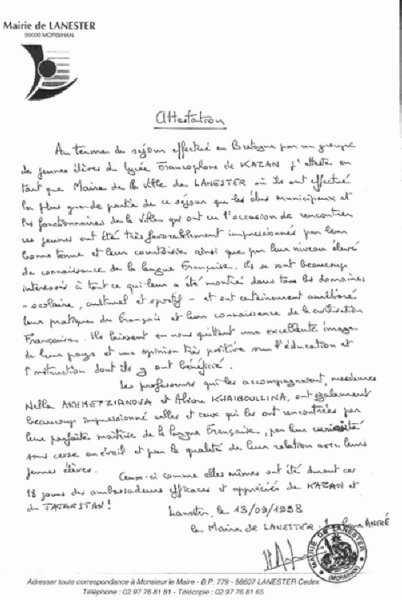 Mairie de LANESTER
56600 MORBIHAN
Attestation
Au terme du séjour effectué en Bretagne par un groupe
de jeunes élèves du lycée Francophone de KAZAN j'atteste en
tant que Maire de la Ville de LANESTER où ils ont effectué
la plus grande partie de ce séjour que les élus municipaux et
les fonctionnaires de la Ville qui ont eu l'occasion de rencontrer
ces jeunes ont été très favorablement impressionnés par leur
bonne tenue et leur courtoisie ainsi que par leur niveau élevé
de connaissance de la langue Française. Ils se sont beaucoup
intéressés à tout ce qui leur a été montré dans tous les domaines
- scolaire, culturel et sportif - et ont certainement amélioré
leur pratique du Français et leur connaissance de la civilisation
Française. Ils laissent en nous quittant une excellente image
de leur pays et une opinion très positive sur l'éducation et
l'instruction dont ils y ont bénéficié.
Les professeurs qui les accompagnaient, mesdames
Nella AKHMETZIANOVA et KHAIBOULLINA, ont également
beaucoup impressionné celles et ceux qui les ont rencontrées par
leur parfaite maîtrise de la langue Française, par leur curiosité
sans cesse en éveil et par la qualité de leur relation avec leurs
jeunes élèves.
Ceux-ci comme elles mêmes ont été durant ces
18 jours des ambassadeurs efficaces et appréciés de KAZAN et
du TATARSTAN!
Lanester, le 13/09/1998
le Maire de LANESTER, ANDRÉ
MAIRIE DE LANESTER
(MORBIHAN)
Adresser toute correspondance à Monsieur le Maire - B.P. 779 - 56607 LANESTER Cedex
Téléphone : 02 97 76 81 81 - Télécopie : 02 97 76 81 65